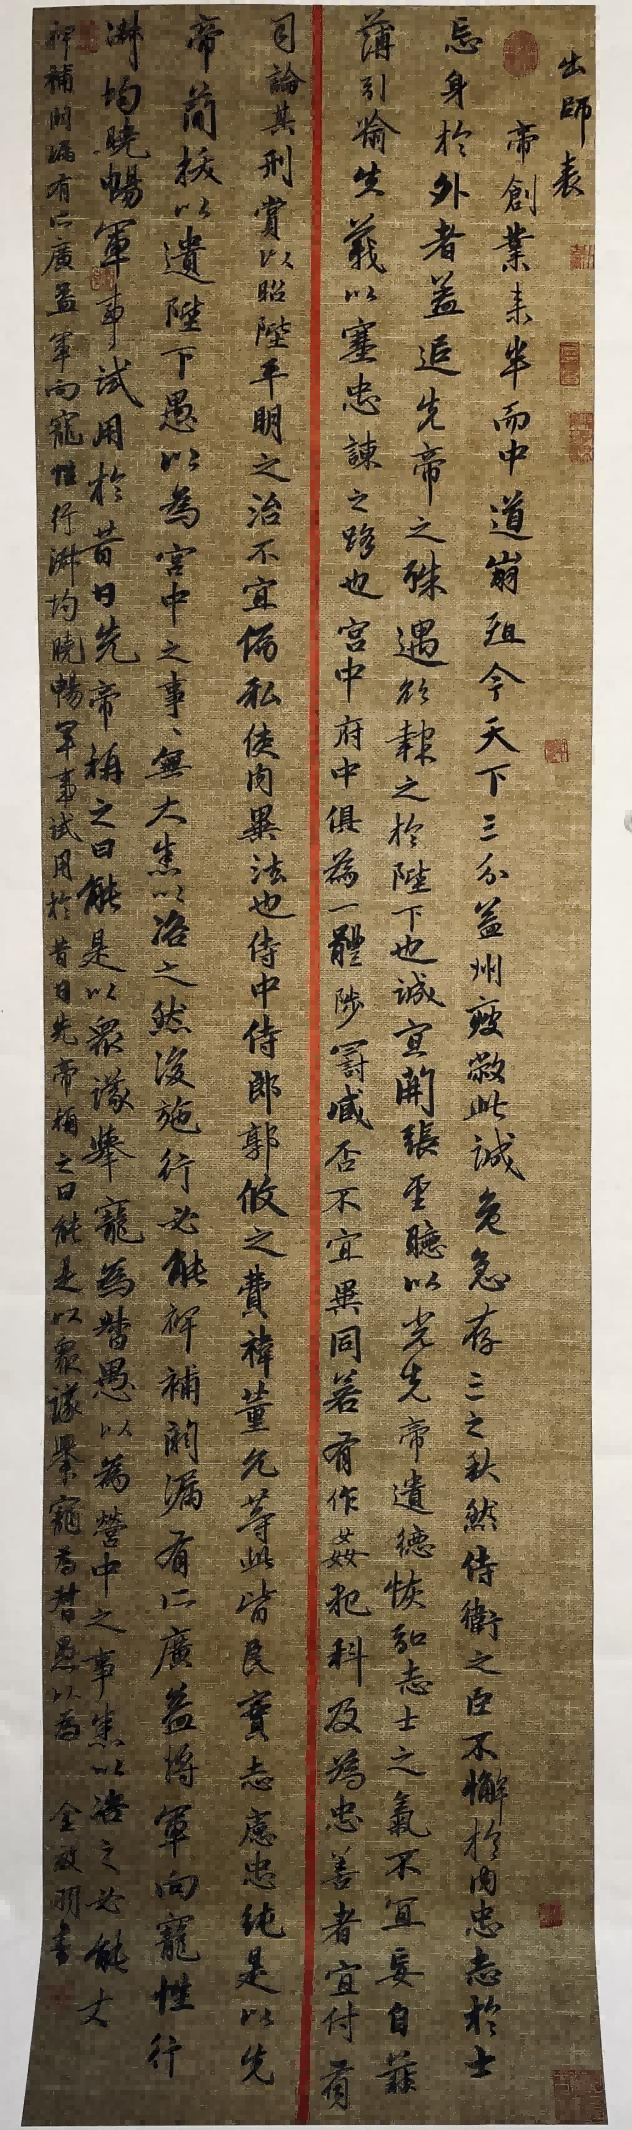 出師表
帝創業未半而中道崩殂今天下三分益州疲敝此誠危急存亡之秋然侍衛之臣不懈於內忠志於士
忘身於外者蓋追先帝之殊遇欲報之於陛下也誠宜開張聖聽以光先帝遺德恢弘志士之氣不宜妄自菲
薄引喻失義以塞忠諫之路也宮中府中俱為一體陟罰臧否不宜異同若有作姦犯科及為忠善者宜付有
司論其刑賞以昭陛平明之治不宜偏私使內異法也侍中侍郎郭攸之費禕董允等此皆良實志慮忠純是以先
帝簡拔以遺陛下愚以為宮中之事、無大悉以咨之然後施行必能裨補闕漏有所廣益將軍向寵性行
淑均曉暢軍事試用於昔日先帝稱之曰能是以眾議舉寵為督愚以為營中之事悉以咨之必能
裨補闕漏有所廣益軍向寵性行淑均曉暢軍事試用於昔日先帝稱之曰能是以眾議舉寵為督愚以為 明書